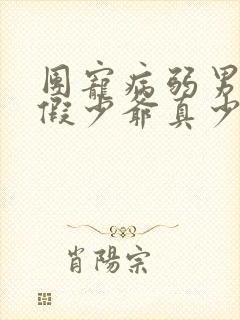 團寵病弱男
假少爺真少
肖陽宗